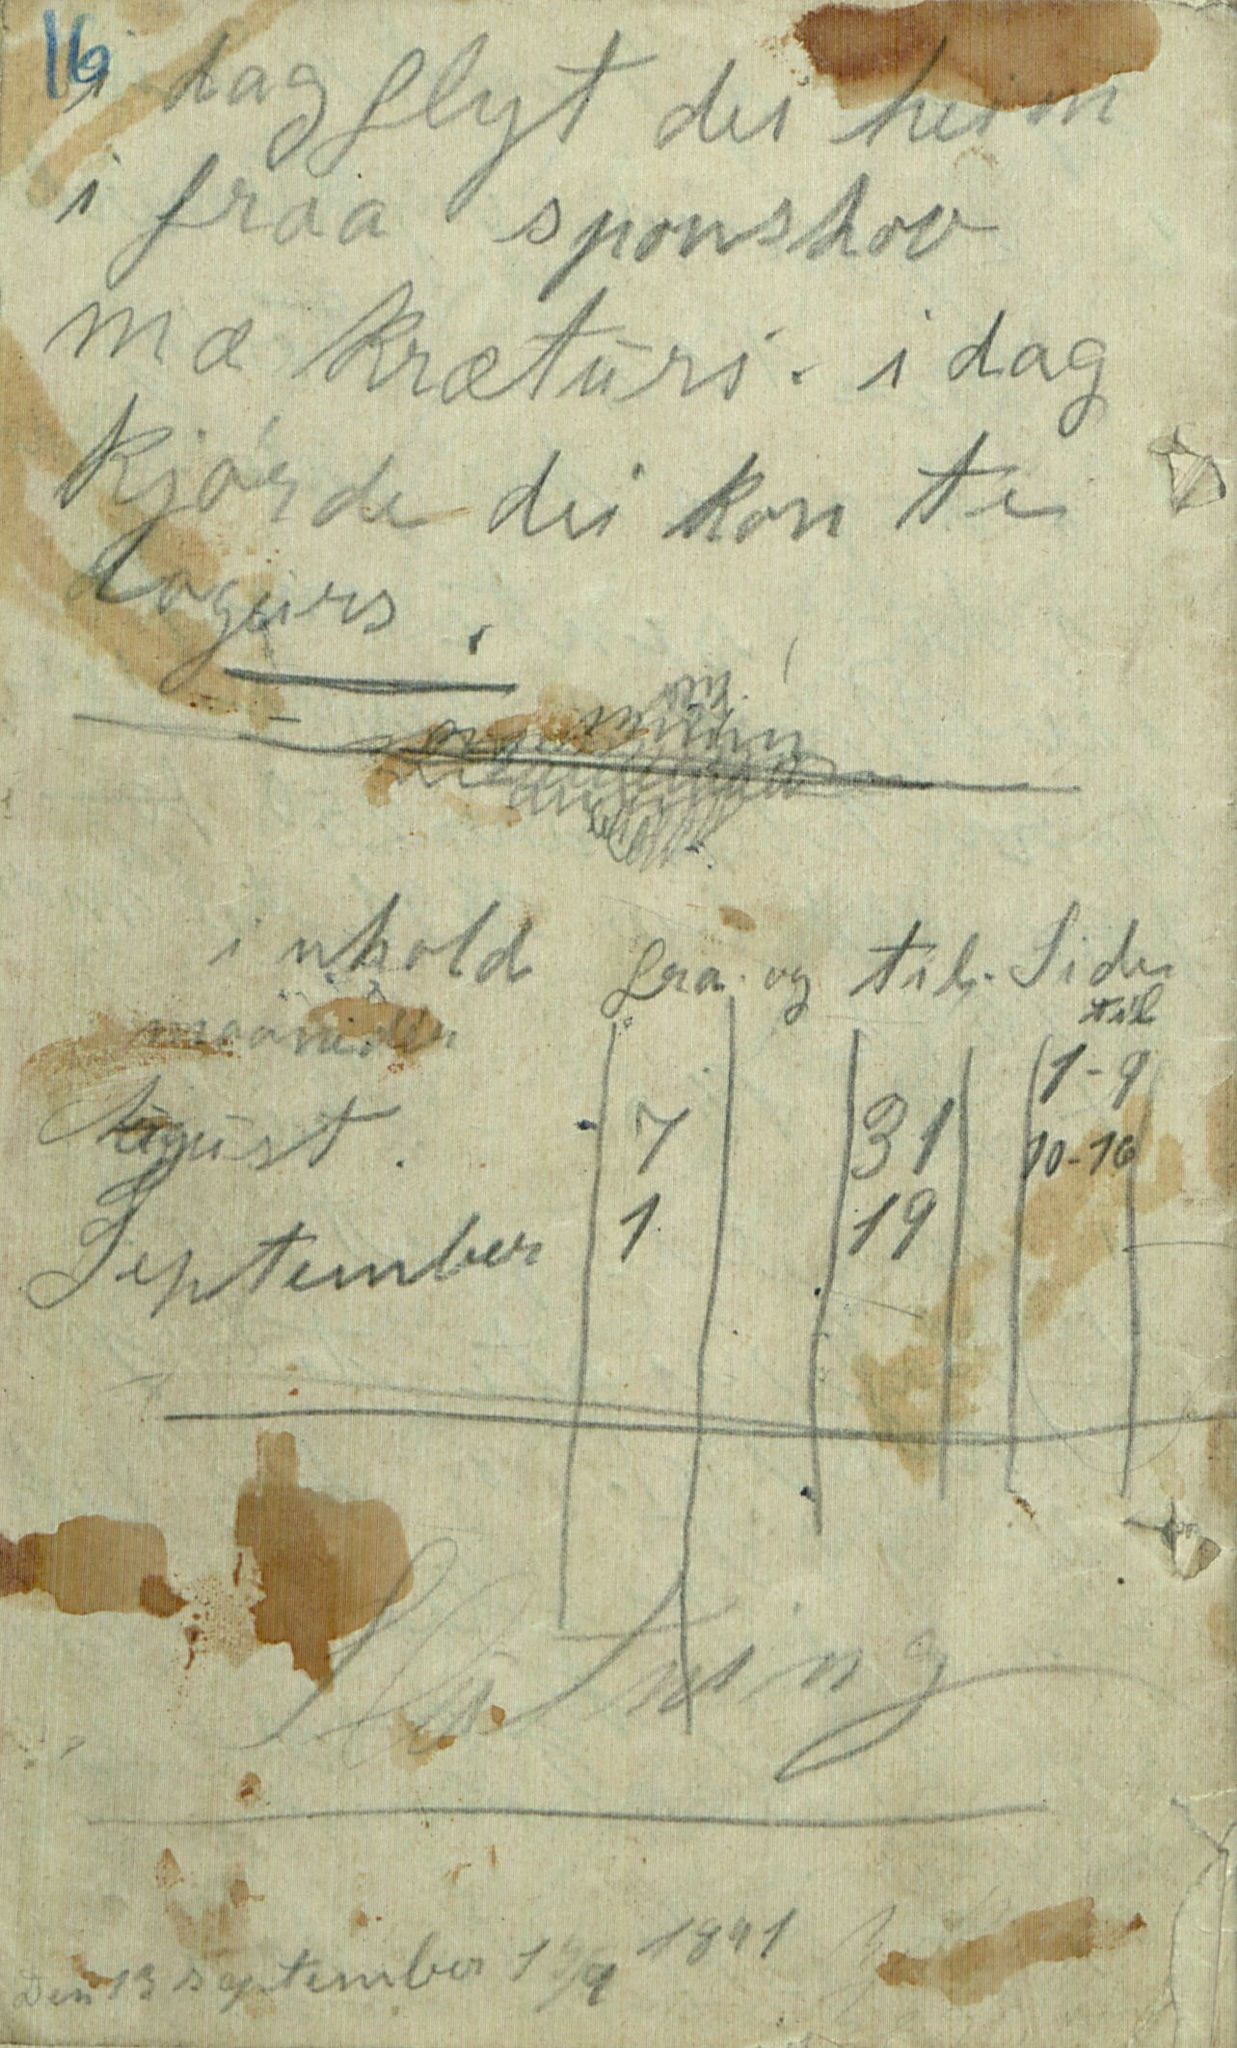 16
i dag flyt dei heim
i fraa sponshov
mæ Krætŭrs. i dag
Kjórde dei kon te
dogurs.
inhold fra. og til. Sider
maaneder til
August. 7 31 1-9
September 1 19 10-16
Slutning
Den 13 september 1891